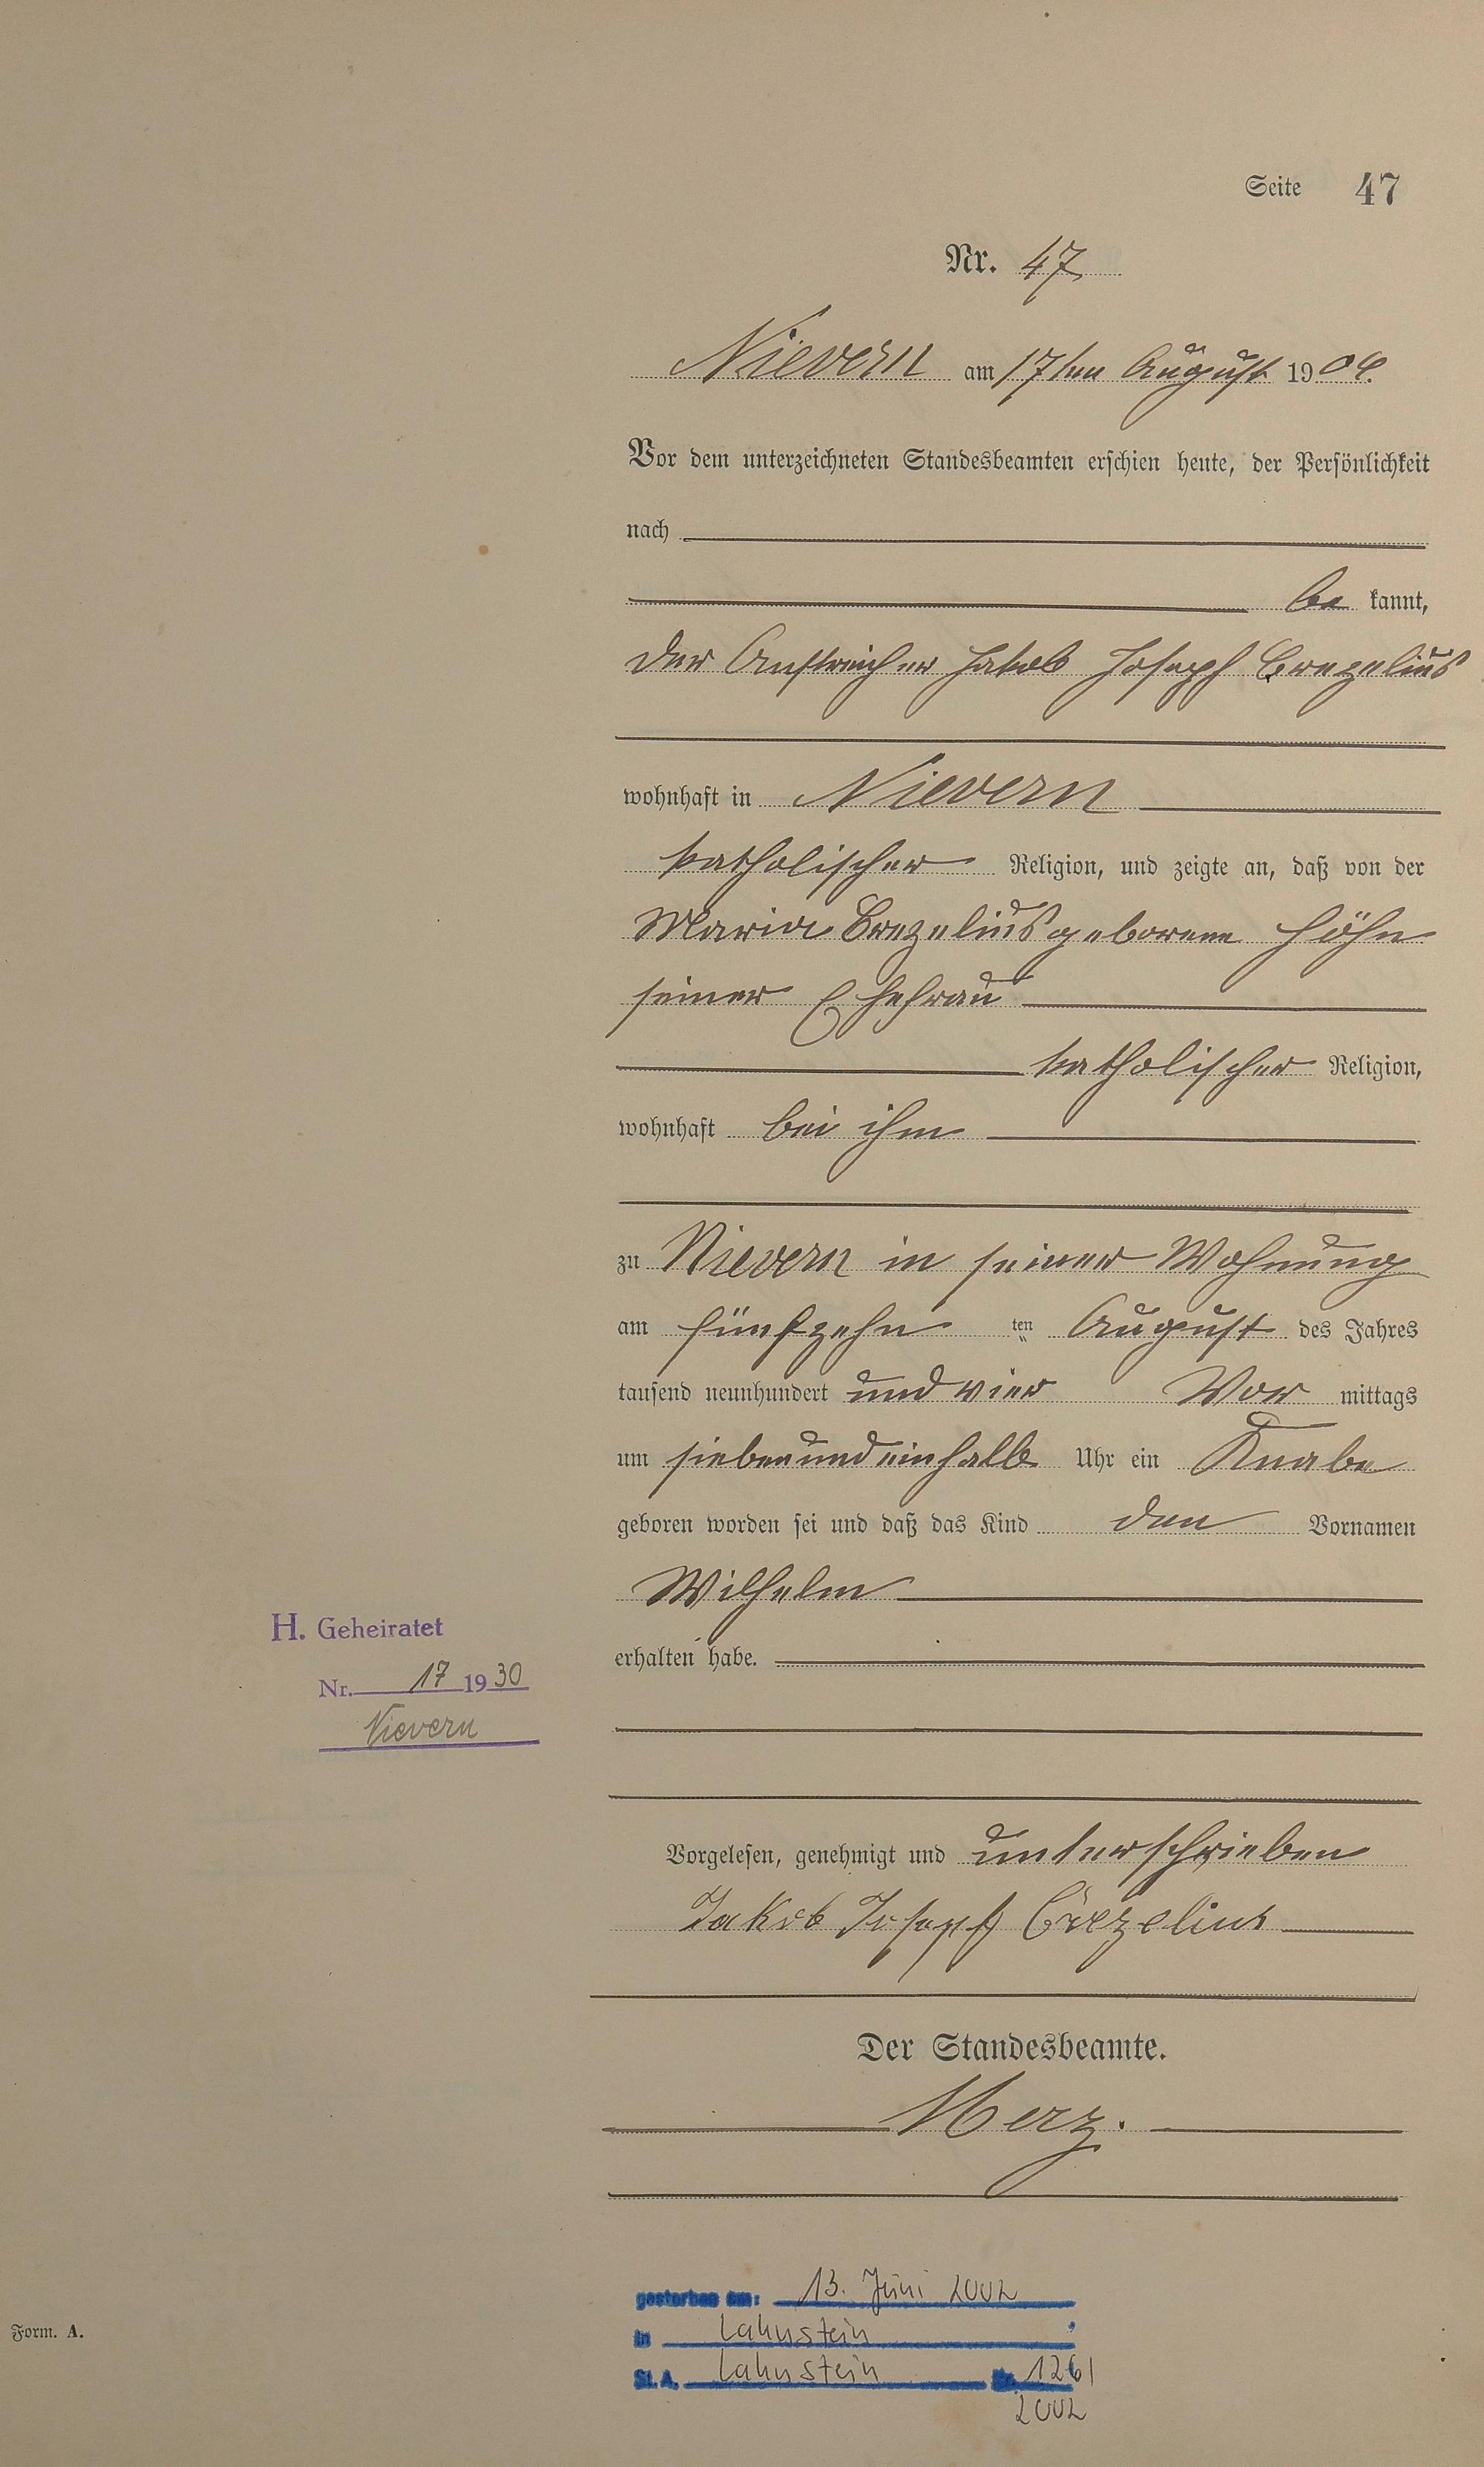 Seite 47
Nr. 47
Nievern am 17ten August 1904.
Vor dem unterzeichneten Standesbeamten erschien heute, der Persönlichkeit
nach
be kannt,
der Anstreicher Jakob Joseph Crezelius
wohnhaft in Nievern
katholischer Religion, und zeigte an, daß von der
Maria Crezelius geborene Höhn
seiner Ehefrau
katholischer Religion,
wohnhaft bei ihm
zu Nievern in seiner Wohnung
am fünfzehn ten August des Jahres
tausend neunhundert und vier Vor mittags
um siebenundeinhalb Uhr ein Knabe
geboren worden sei und daß das Kind den Vornamen
Wilhelm
erhalten habe.
H. Geheiratet
Nr. 17 1930
Nievern
Vorgelesen, genehmigt und unterschrieben
Jakob Joseph Crezelius
Der Standesbeamte.
Merz.
gestorben am: 13. Juni 2002
in Lahnstein
St. A. Lahnstein Nr. 126/
2002
Form. A.